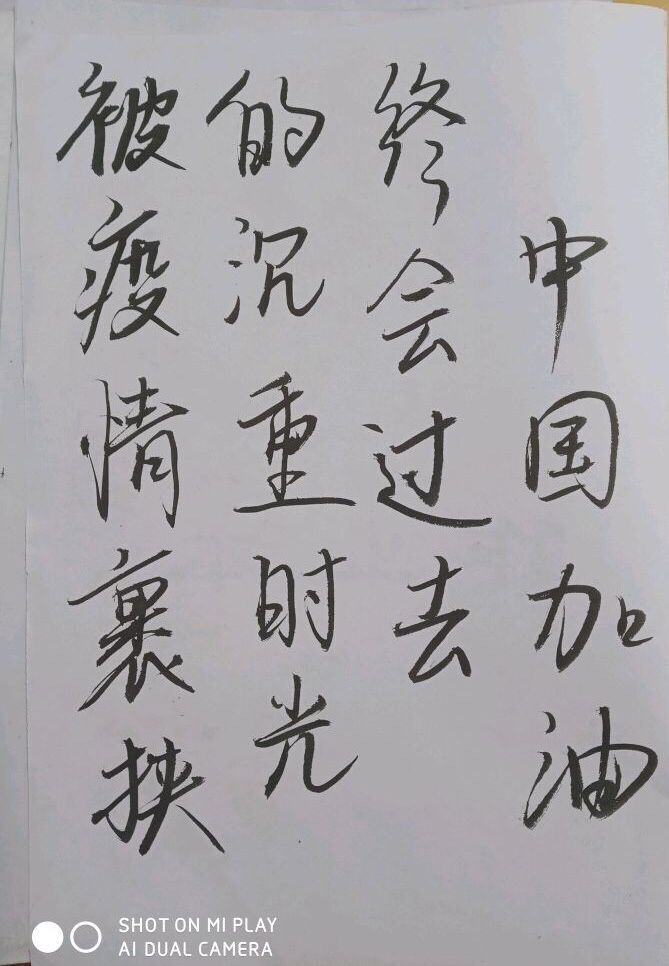 被疫情裹挟
的沉重时光
终会过去
中国加油
SHOT ON MI PLAY
AI DUAL CAMERA